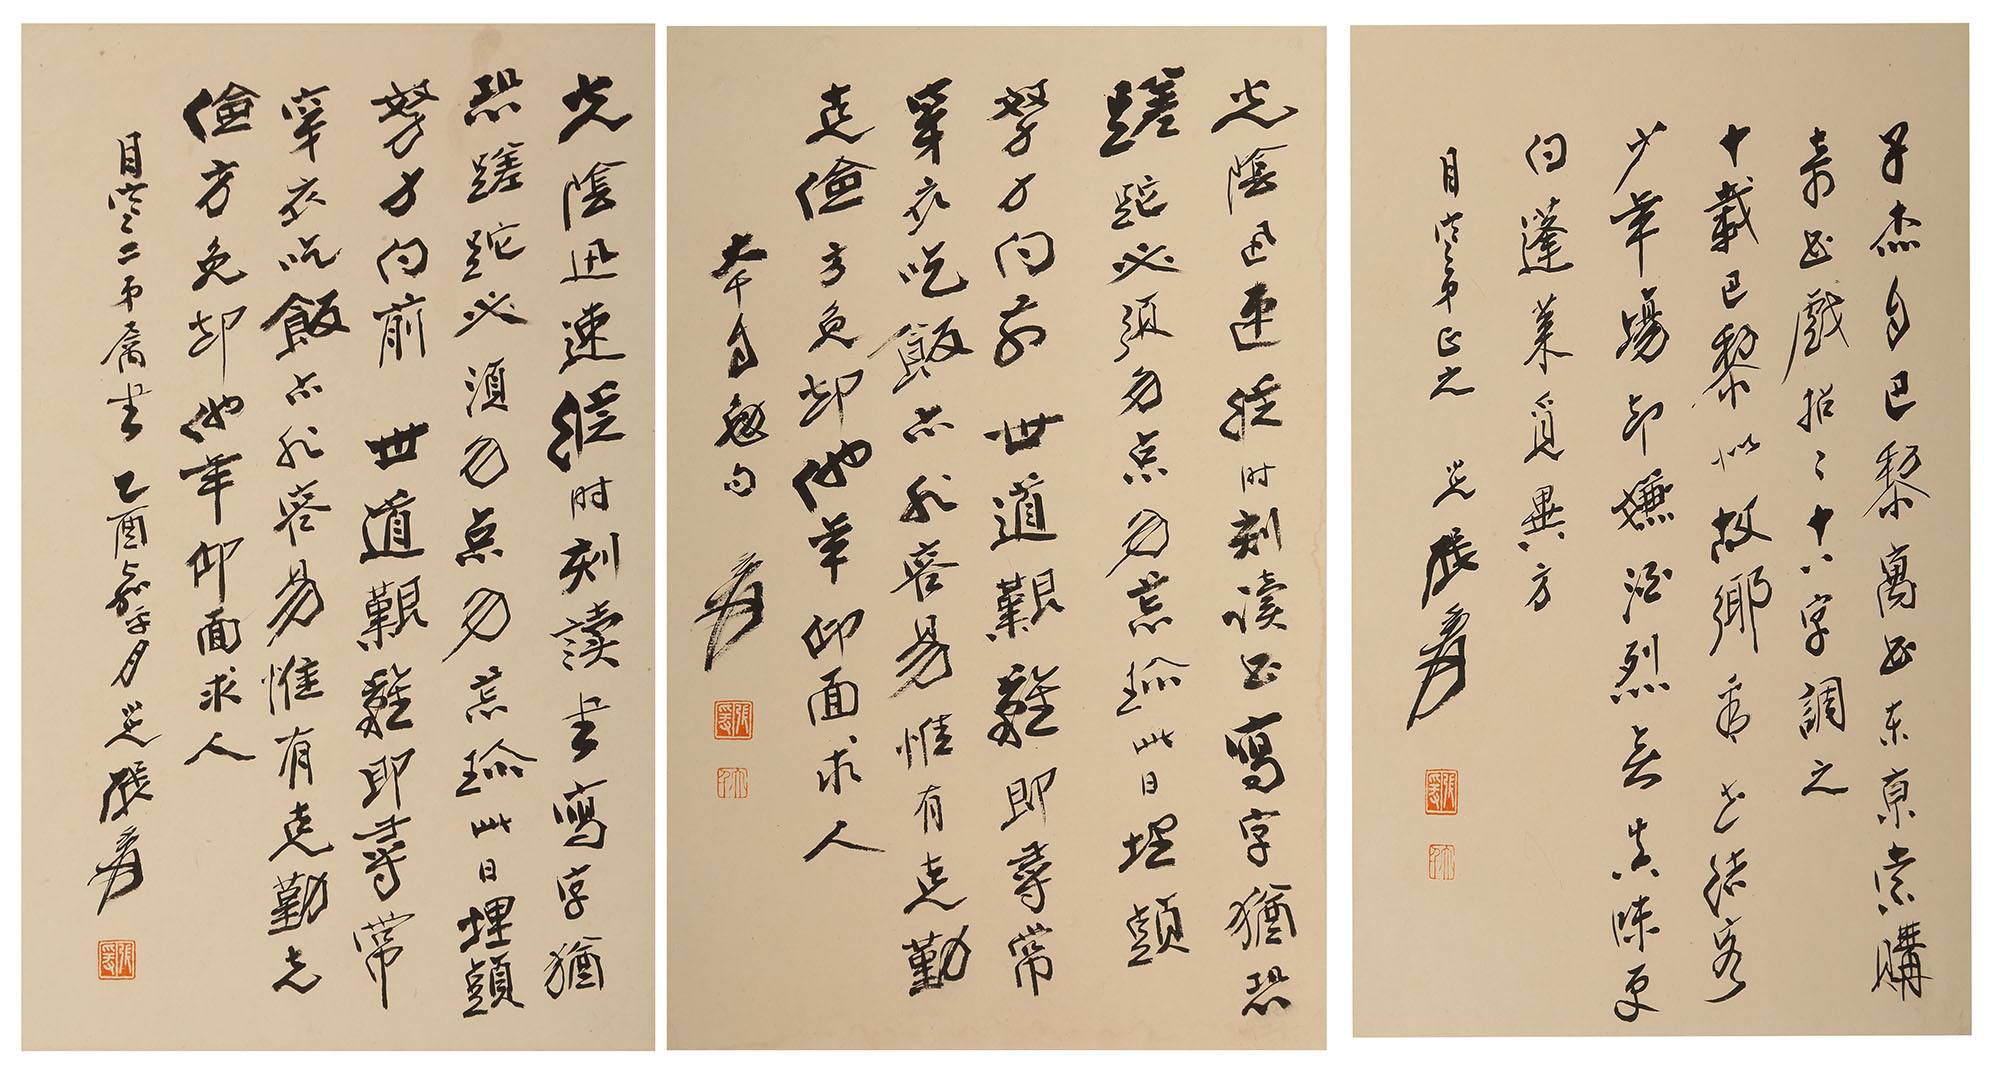 子杰自巴黎寓書東京索購
奇書戲拈二十八字調之
十載巴黎似故鄉看花結客
少年場却嫌酒烈無真味更
向蓬萊覓異方
目寒弟正之 兄張爰
光陰迅速縱時刻讀書寫字猶恐
蹉跎必須勿怠勿荒趁此日埋頭
努力向前世道艱難即尋常
穿衣吃飯亦非容易惟有克勤
克儉方免却他年仰面求人
大千自勉句 爰
光陰迅速縱時刻讀書寫字猶
恐蹉跎必須勿怠勿荒趁此日埋頭
努力向前世道艱難即尋常
穿衣吃飯亦非容易惟有克勤克
儉方免却他年仰面求人
目寒二弟屬書 乙酉嘉平月 兄張爰